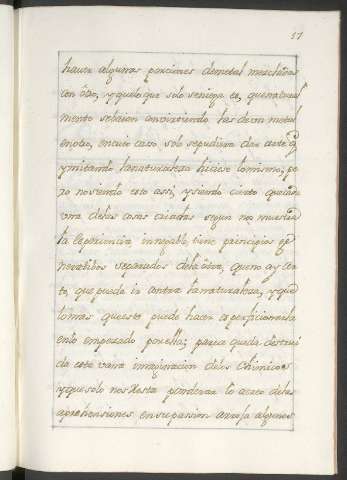 17
hauer algunas porciones de metal mescladas
con otro, y que lo que solo se niega es, que natural
mente se baian convirtiendo las de un metal
en otro, en cuio caso solo se pudiera dar arte q̃
ymitando la naturaleza hiciese lo mismo; pe
ro no siendo esto assi, y siendo cierto que cada
una de las cosas criadas segun nos muestra
la Experiencia innegable tiene principios ge
nerativos separados de la otra, que no ay ar
te, que pueda ir contra la naturaleza, y que
lo mas que este puede hacer es perficionar la
en lo empesado por ella; parece queda destrui
da esta vana imaginacion de los Chimicos
y que solo nos Resta ponderar lo de las
aprehensiones en su pasion a algunos